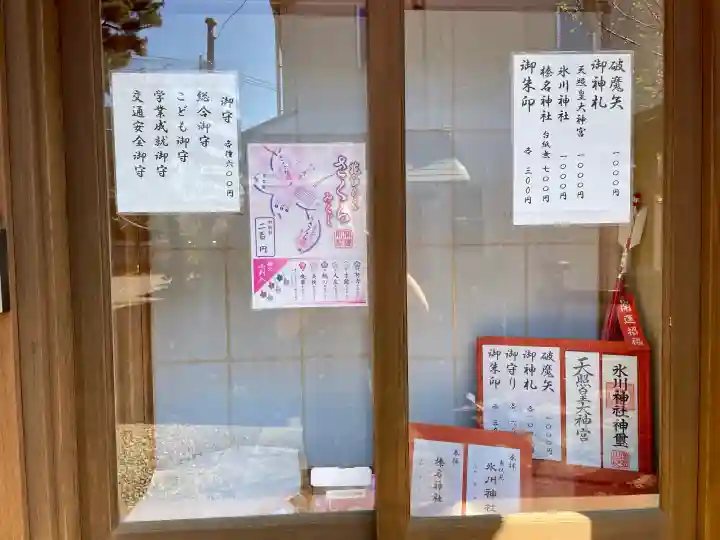 破魔矢 一〇〇〇
御神札
天照皇大神宮 一〇〇〇
氷川神社 一〇〇〇
榛名神社 台紙無 七〇〇
御朱印 各 三〇〇円
御守 各種六〇〇円
総合御守
こども御守
学業成就御守
交通安全御守
花ひらく
さくら
みくじ
二百円
開運招福
氷川神社神璽
天照皇大神宮
破魔矢 一〇〇〇
御神札
御守り
御朱印
氷川神社
榛名神社